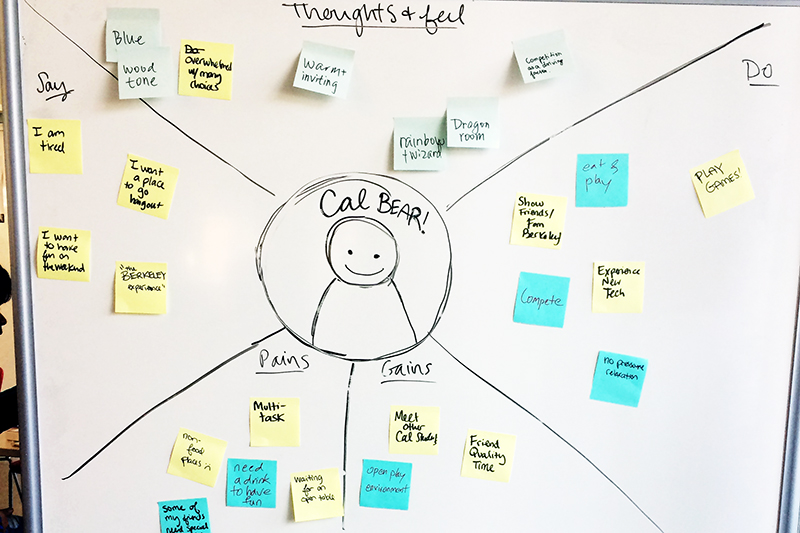 Thoughts & feel
Blue
wood
tone
overwhelmed
w/ many
choices
warm +
inviting
rainbow
+ wizard
Dragon
room
Competition
as a driving
Say
I am
tired
I want
a place
to go
hangout
I want
to have
fun on
the weekend
"the
BERKELEY
experience"
Cal BEAR!
Do
eat &
play
PLAY
GAMES!
Show
Friends/
Fam
Berkeley
Experience
New
Tech
Compete
no pressure
relaxation
Pains
Multi-
task
non-
food
places
need
a drink
to have
fun
waiting
for an
open table
some of
my friends
need special
Gains
Meet
other
Cal
Friend
Quality
Time
open play
environment